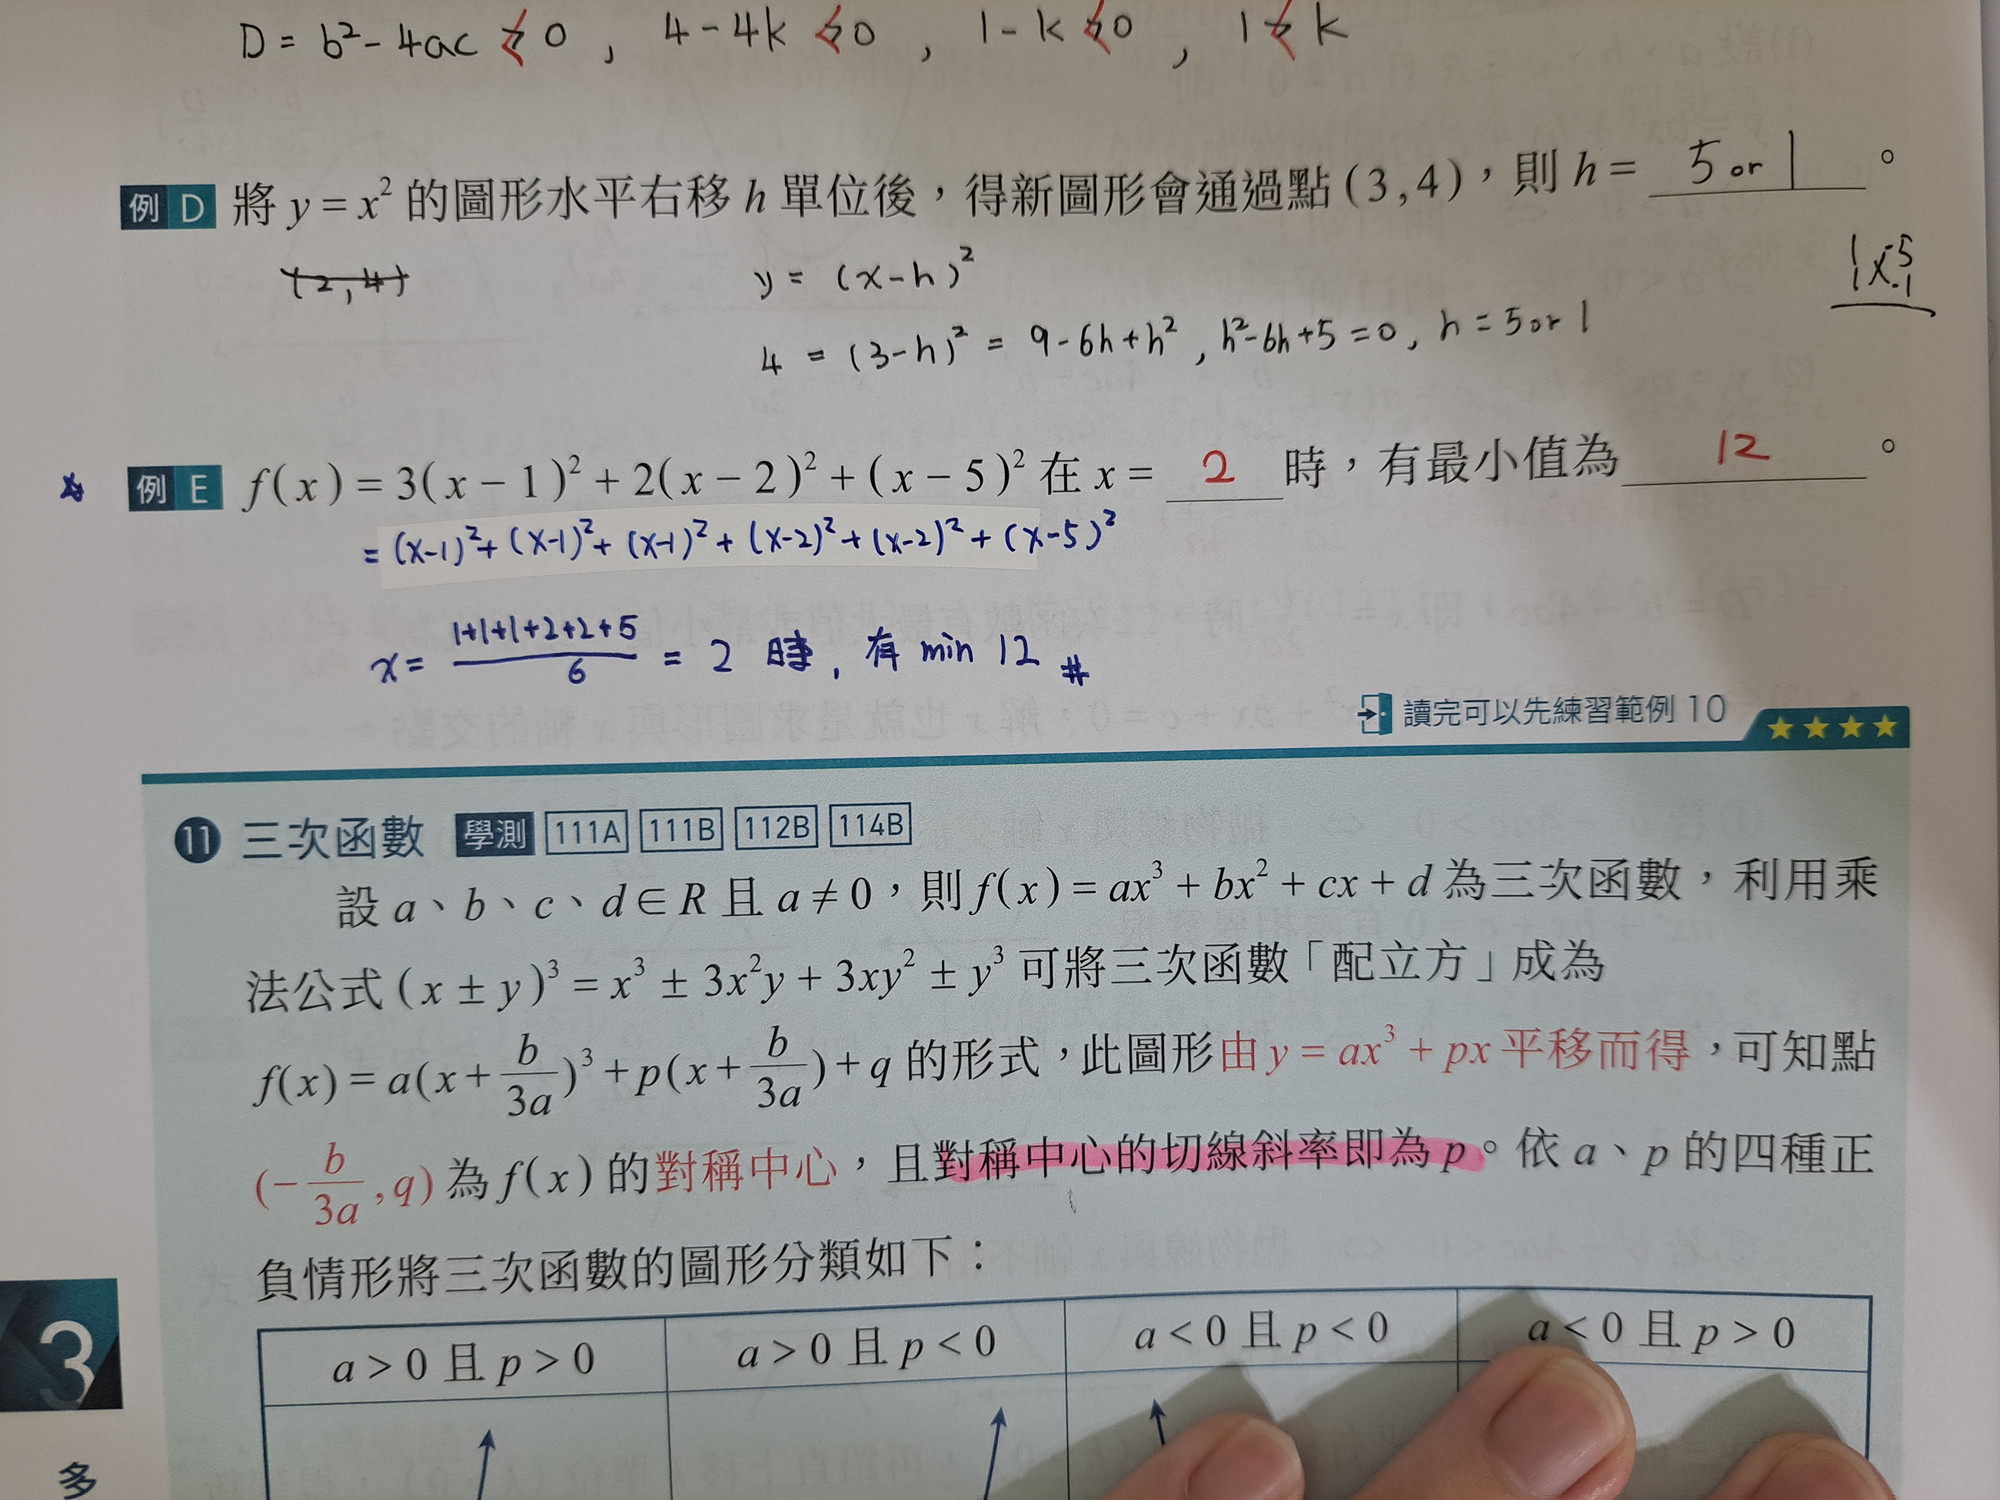 D = b²-4ac ≮ 0 , 4-4k ≮ 0 , 1-k ≮ 0 , 1 ≮ k
例 D 將 y = x² 的圖形水平右移 h 單位後，得新圖形會通過點 (3,4)，則 h = 5 or 1 。
(2,4)
y = (x-h)²
1 -5
1 -1
4 = (3-h)² = 9-6h+h² , h²-6h+5=0, h = 5 or 1
例 E f(x) = 3(x-1)² + 2(x-2)² + (x-5)² 在 x = 2 時，有最小值為 12 。
= (x-1)²+(x-1)²+(x-1)²+(x-2)²+(x-2)²+(x-5)²
x = (1+1+1+2+2+5)/6 = 2 時, 有 min 12 #
讀完可以先練習範例 10 ★★★★
⓫ 三次函數 學測 111A 111B 112B 114B
設 a、b、c、d∈R 且 a≠0，則 f(x) = ax³ + bx² + cx + d 為三次函數，利用乘
法公式 (x ± y)³ = x³ ± 3x²y + 3xy² ± y³ 可將三次函數「配立方」成為
f(x) = a(x+b/3a)³+p(x+b/3a)+q 的形式，此圖形由 y = ax³ + px 平移而得，可知點
(-b/3a,q) 為 f(x) 的對稱中心，且對稱中心的切線斜率即為 p。依 a、p 的四種正
負情形將三次函數的圖形分類如下：
a > 0 且 p > 0 a > 0 且 p < 0 a < 0 且 p < 0 a < 0 且 p > 0
3
多